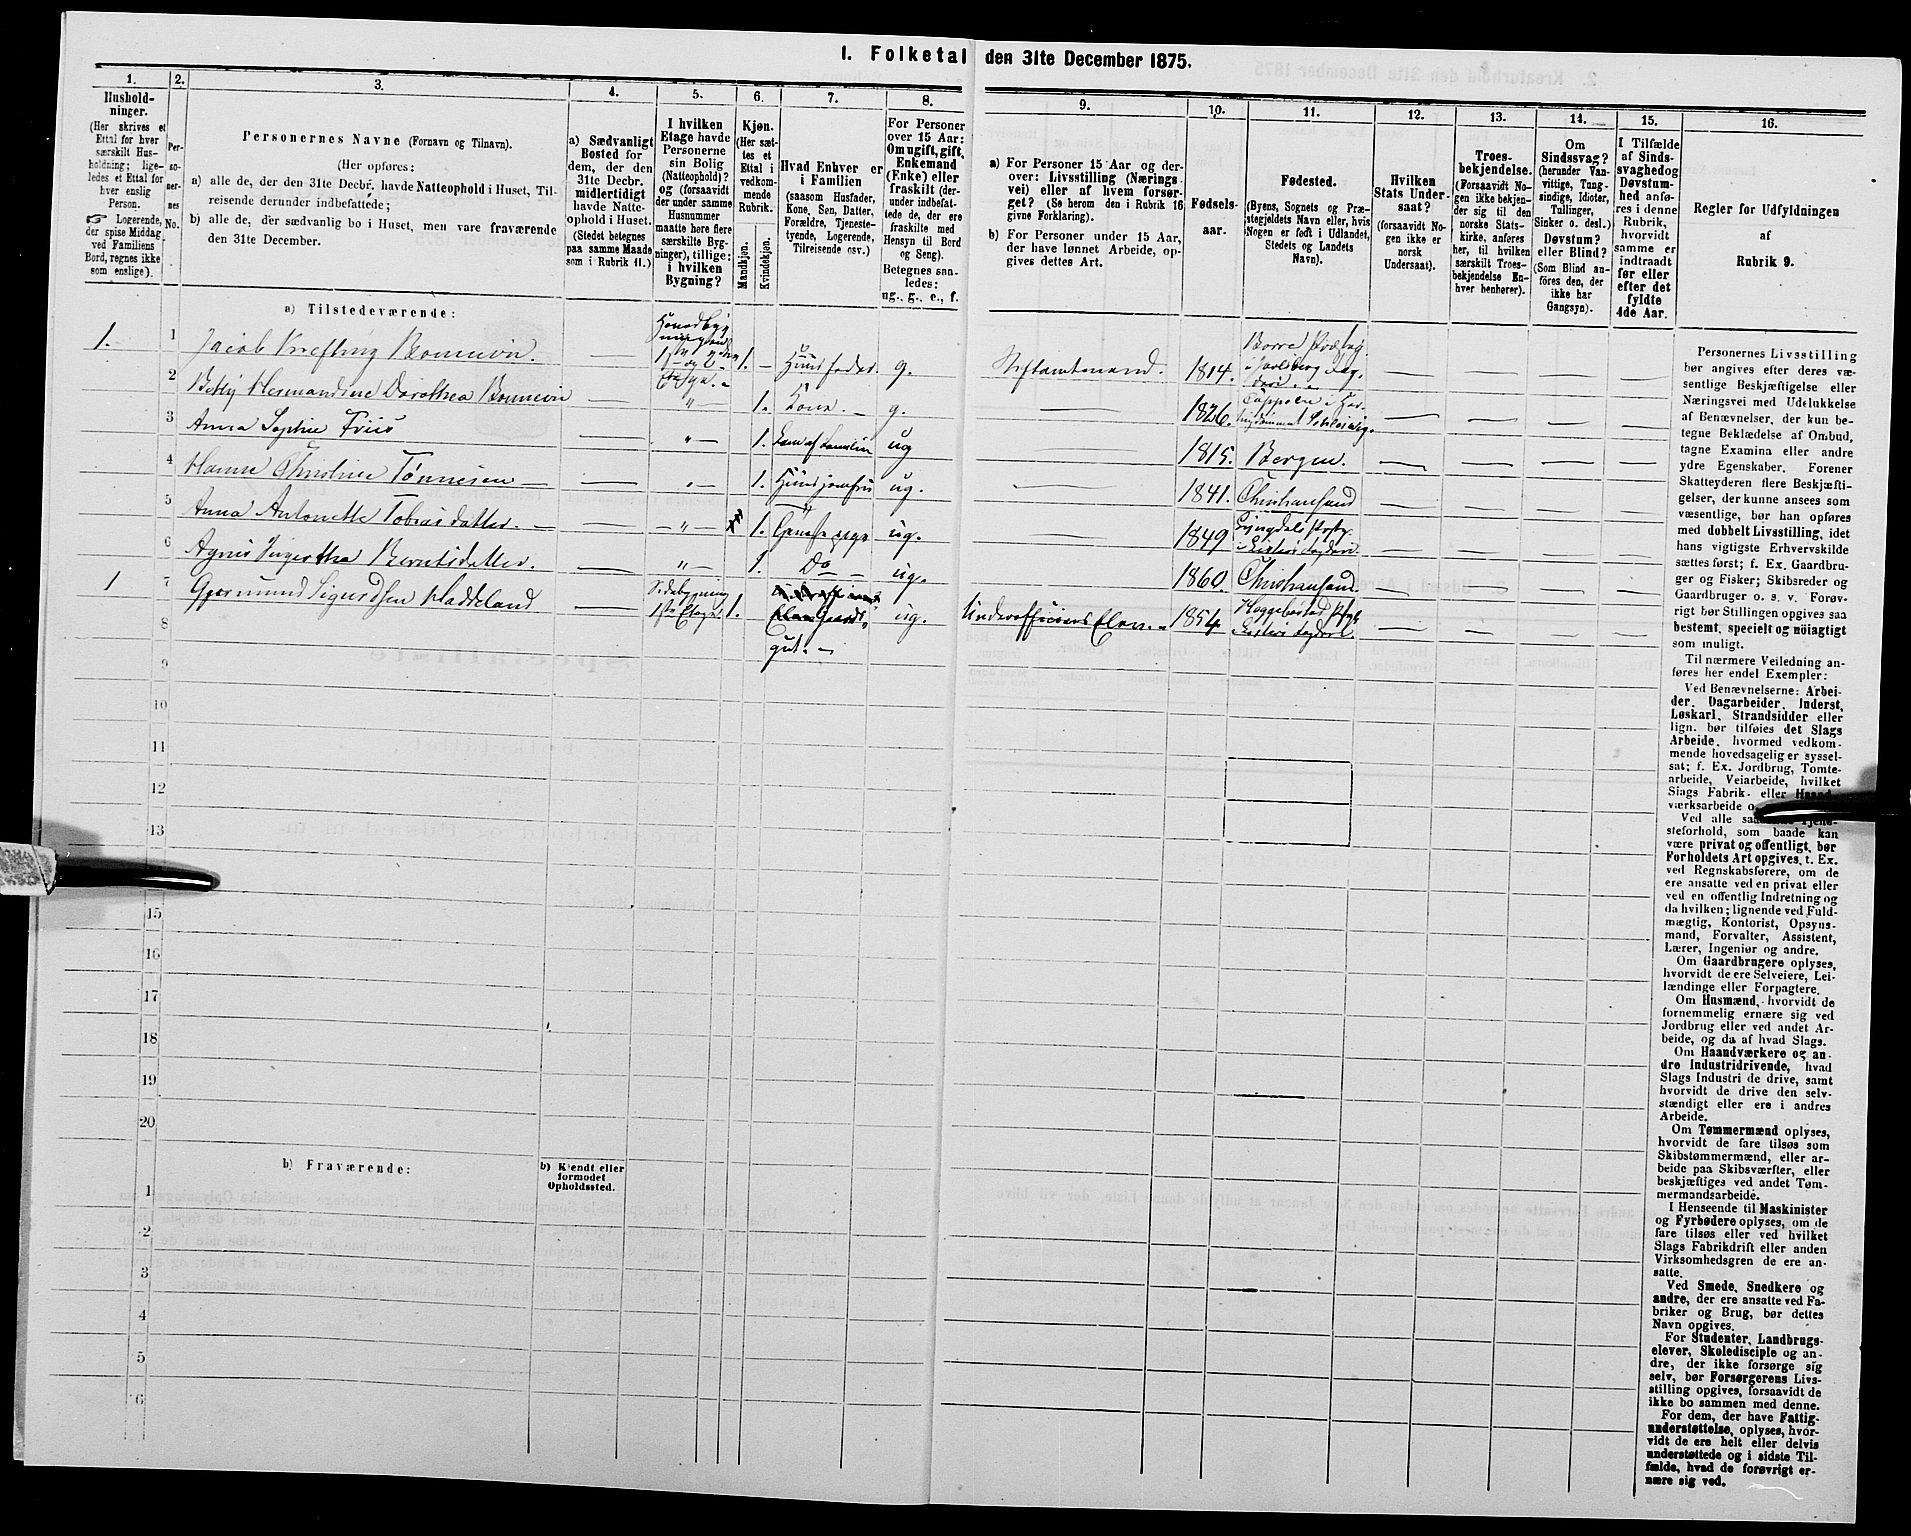 I. Folketal den 31te December 1875.
1.
Hushold-
ninger.
(Her skrives et
Ettal for hver
særskilt Hus-
holdning; lige-
ledes et Ettal for
hver enslig
Person.
☞ Logerende,
der spise Middag
ved Familiens
Bord, regnes ikke
som enslige).
2.
Per-
so-
ner-
nes
No.
3.
Personernes Navne (Fornavn og Tilnavn).
(Her opføres:
a) alle de, der den 31te Decbr. havde Natteophold i Huset, Til-
reisende derunder indbefattede;
b) alle de, der sædvanlig bo i Huset, men vare fraværende
den 31te December.
4.
a) Sædvanligt
Bosted for
dem, der den
31te Decbr.
midlertidigt
havde Natte-
ophold i Huset.
(Stedet betegnes
paa samme Maade
som i Rubrik 11.)
5.
I hvilken
Etage havde
Personerne
sin Bolig
(Natteophold)?
og (forsaavidt
der under samme
Husnummer
maatte høre flere
særskilte Byg-
ninger), tillige:
i hvilken
Bygning?
6.
Kjøn.
(Her sæt-
tes et
Ettal i
vedkom-
mende
Rubrik.
Mandkjøn.
Kvindekjøn.
7.
Hvad Enhver er
i Familien
(saasom Husfader,
Kone, Søn, Datter,
Forældre, Tjeneste-
tyende, Logerende,
Tilreisende osv.)
8.
For Personer
over 15 Aar:
Om ugift, gift,
Enkemand
(Enke) eller
fraskilt (der-
under indbefat-
tede de, der ere
fraskilte med
Hensyn til Bord
og Seng).
Betegnes saa-
ledes:
ug., g., e., f.
9.
a) For Personer 15 Aar og der-
over: Livsstilling (Nærings-
vei) eller af hvem forsør-
get? (Se herom den i Rubrik 16
givne Forklaring).
b) For Personer under 15 Aar,
der have lønnet Arbeide, op-
gives dettes Art.
10.
Fødsels-
aar.
11.
Fødested.
(Byens, Sognets og Præ-
stegjeldets Navn eller, hvis
Nogen er født i Udlandet,
Stedets og Landets
Navn).
12.
Hvilken
Stats Under-
saat?
(forsaavidt No-
gen ikke er
norsk
Undersaat).
13.
Troes-
bekjendelse.
(Forsaavidt No-
gen ikke bekjen-
der sig til den
norske Stats-
kirke, anføres
her, til hvilken
særskilt Troes-
bekjendelse En-
hver henhører).
14.
Om
Sindssvag?
(herunder Van-
vittige, Tung-
sindige, Idioter,
Tullinger,
Sinker o. desl.)
Døvstum?
eller Blind?
(Som Blind an-
føres den, der
ikke har
Gangsyn).
15.
I Tilfælde
af Sinds-
svaghed og
Døvstum-
hed anfø-
res i denne
Rubrik,
hvorvidt
samme er
indtraadt
før eller
efter det
fyldte
4de Aar.
16.
Regler for Udfyldningen
af
Rubrik 9.
a) Tilstedeværende:
1. 1 Jacob Krefting Bonnevie. 1. Huusfader. g. Stiftamtmand. 1814.
2 Betzy Hermandine Dorothea Bonnevie " 1. Kone. g. 1826.
3 Anna Sophie Friis " 1. ug 1815. Bergen.
4 Hanne Christine Tønnesen " 1. Huusjomfru ug. 1841. Christiansand
5 Anna Antonette Tobiasdatter. " 1. ug. 1849
6 Agnes Berntsdatter. " 1. Do ug. 1860. Christiansand
1 7 Gjermund Sigurdsen Haddeland Sidebygning 1ste Etage 1. gut. ug. Underofficiers Elev. 1854.
8
9
10
11
12
13
15
16
17
18
19
20
b) Fraværende:
b) Kjendt eller
formodet
Opholdssted.
1
2
3
4
5
6
Personernes Livsstilling
bør angives efter deres væ-
sentlige Beskjæftigelse eller
Næringsvei med Udelukkelse
af Benævnelser, der kun be-
tegne Beklædelse af Ombud,
tagne Examina eller andre
ydre Egenskaber. Forener
Skatteyderen flere Beskjæfti-
gelser, der kunne ansees som
væsentlige, bør han opføres
med dobbelt Livsstilling, idet
hans vigtigste Erhvervskilde
sættes først; f. Ex. Gaardbru-
ger og Fisker; Skibsreder og
Gaardbruger o. s. v. Forøv-
rigt bør Stillingen opgives saa
bestemt, specielt og nöiagtigt
som muligt.
Til nærmere Veiledning an-
føres her endel Exempler:
Ved Benævnelserne: Arbei-
der, Dagarbeider, Inderst,
Løskarl, Strandsidder eller
lign. bør tilføies det Slags
Arbeide, hvormed vedkom-
mende hovedsagelig er syssel-
sat; f. Ex. Jordbrug, Tomte-
arbeide, Veiarbeide, hvilket
Slags Fabrik- eller Haand-
værksarbeide
Ved alle
steforhold, som baade kan
være privat og offentligt, bør
Forholdets Art opgives, t. Ex.
ved Regnskabsførere, om de
ere ansatte ved en privat eller
ved en offentlig Indretning og
da hvilken; lignende ved Fuld-
mægtig, Kontorist, Opsyns-
mand, Forvalter, Assistent,
Lærer, Ingeniør og andre.
Om Gaardbrugere oplyses,
hvorvidt de ere Selveiere, Lei-
lændinge eller Forpagtere.
Om Husmænd, hvorvidt de
fornemmelig ernære sig ved
Jordbrug eller ved andet Ar-
beide, og da af hvad Slags.
Om Haandværkere og an-
dre Industridrivende, hvad
Slags Industri de drive, samt
hvorvidt de drive den selv-
stændigt eller ere i andres
Arbeide.
Om Tømmermænd oplyses,
hvorvidt de fare tilsøs som
Skibstømmermænd, eller ar-
beide paa Skibsværfter, eller
beskjæftiges ved andet Tøm-
mermandsarbeide.
I Henseende til Maskinister
og Fyrbødere oplyses, om de
fare tilsøs eller ved hvilket
Slags Fabrikdrift eller anden
Virksomhedsgren de ere an-
satte.
Ved Smede, Snedkere og
andre, der ere ansatte ved Fa-
briker og Brug, bør dettes
Navn opgives.
For Studenter, Landbrugs-
elever, Skoledisciple og an-
dre, der ikke forsørge sig
selv, bør Forsørgerens Livs-
stilling opgives, forsaavidt de
ikke bo sammen med denne.
For dem, der have Fattig-
understøttelse, oplyses, hvor-
vidt de ere helt eller delvis
understøttede og i sidste Til-
fælde, hvad de forøvrigt er-
nære sig ved.